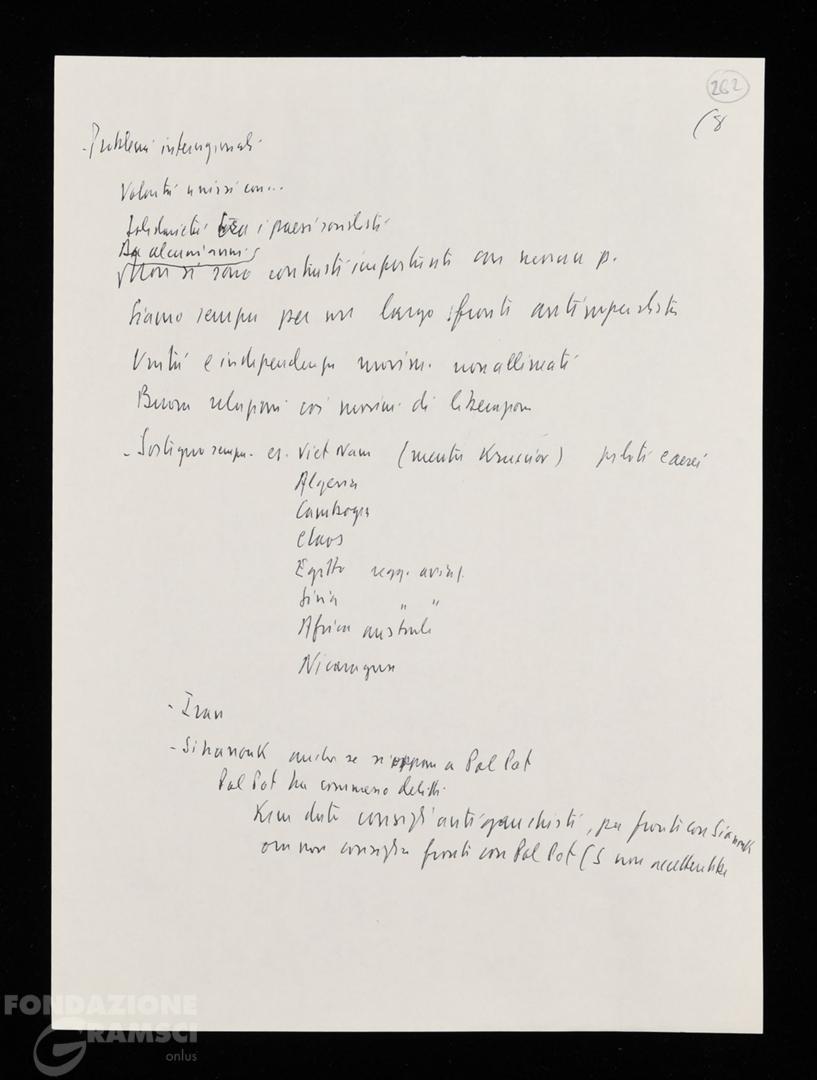 262
(8
- Problemi internazionali
Volontà unirsi con...
Solidarietà tra i paesi socialisti
Da alcuni anni
Non si sono contrasti importanti con nessun p.
Siamo sempre per un largo fronte antimperialista
Unità e indipendenza movim. non allineati
Buone relazioni coi movim. di liberazione
- Sostegno sempre. es. Viet Nam (mentre Krusciov) piloti e aerei
Algeria
Cambogia
Laos
Egitto regg. aviaz.
Siria " "
Africa australe
Nicaragua
- Iran
- Sihanouk anche se si oppone a Pol Pot
Pol Pot ha commesso delitti
Kim dato consigli antigauchisti, per fronte con Sianouk
ora non consiglia fronte con Pol Pot (S non accetterebbe
FONDAZIONE
GRAMSCI
onlus